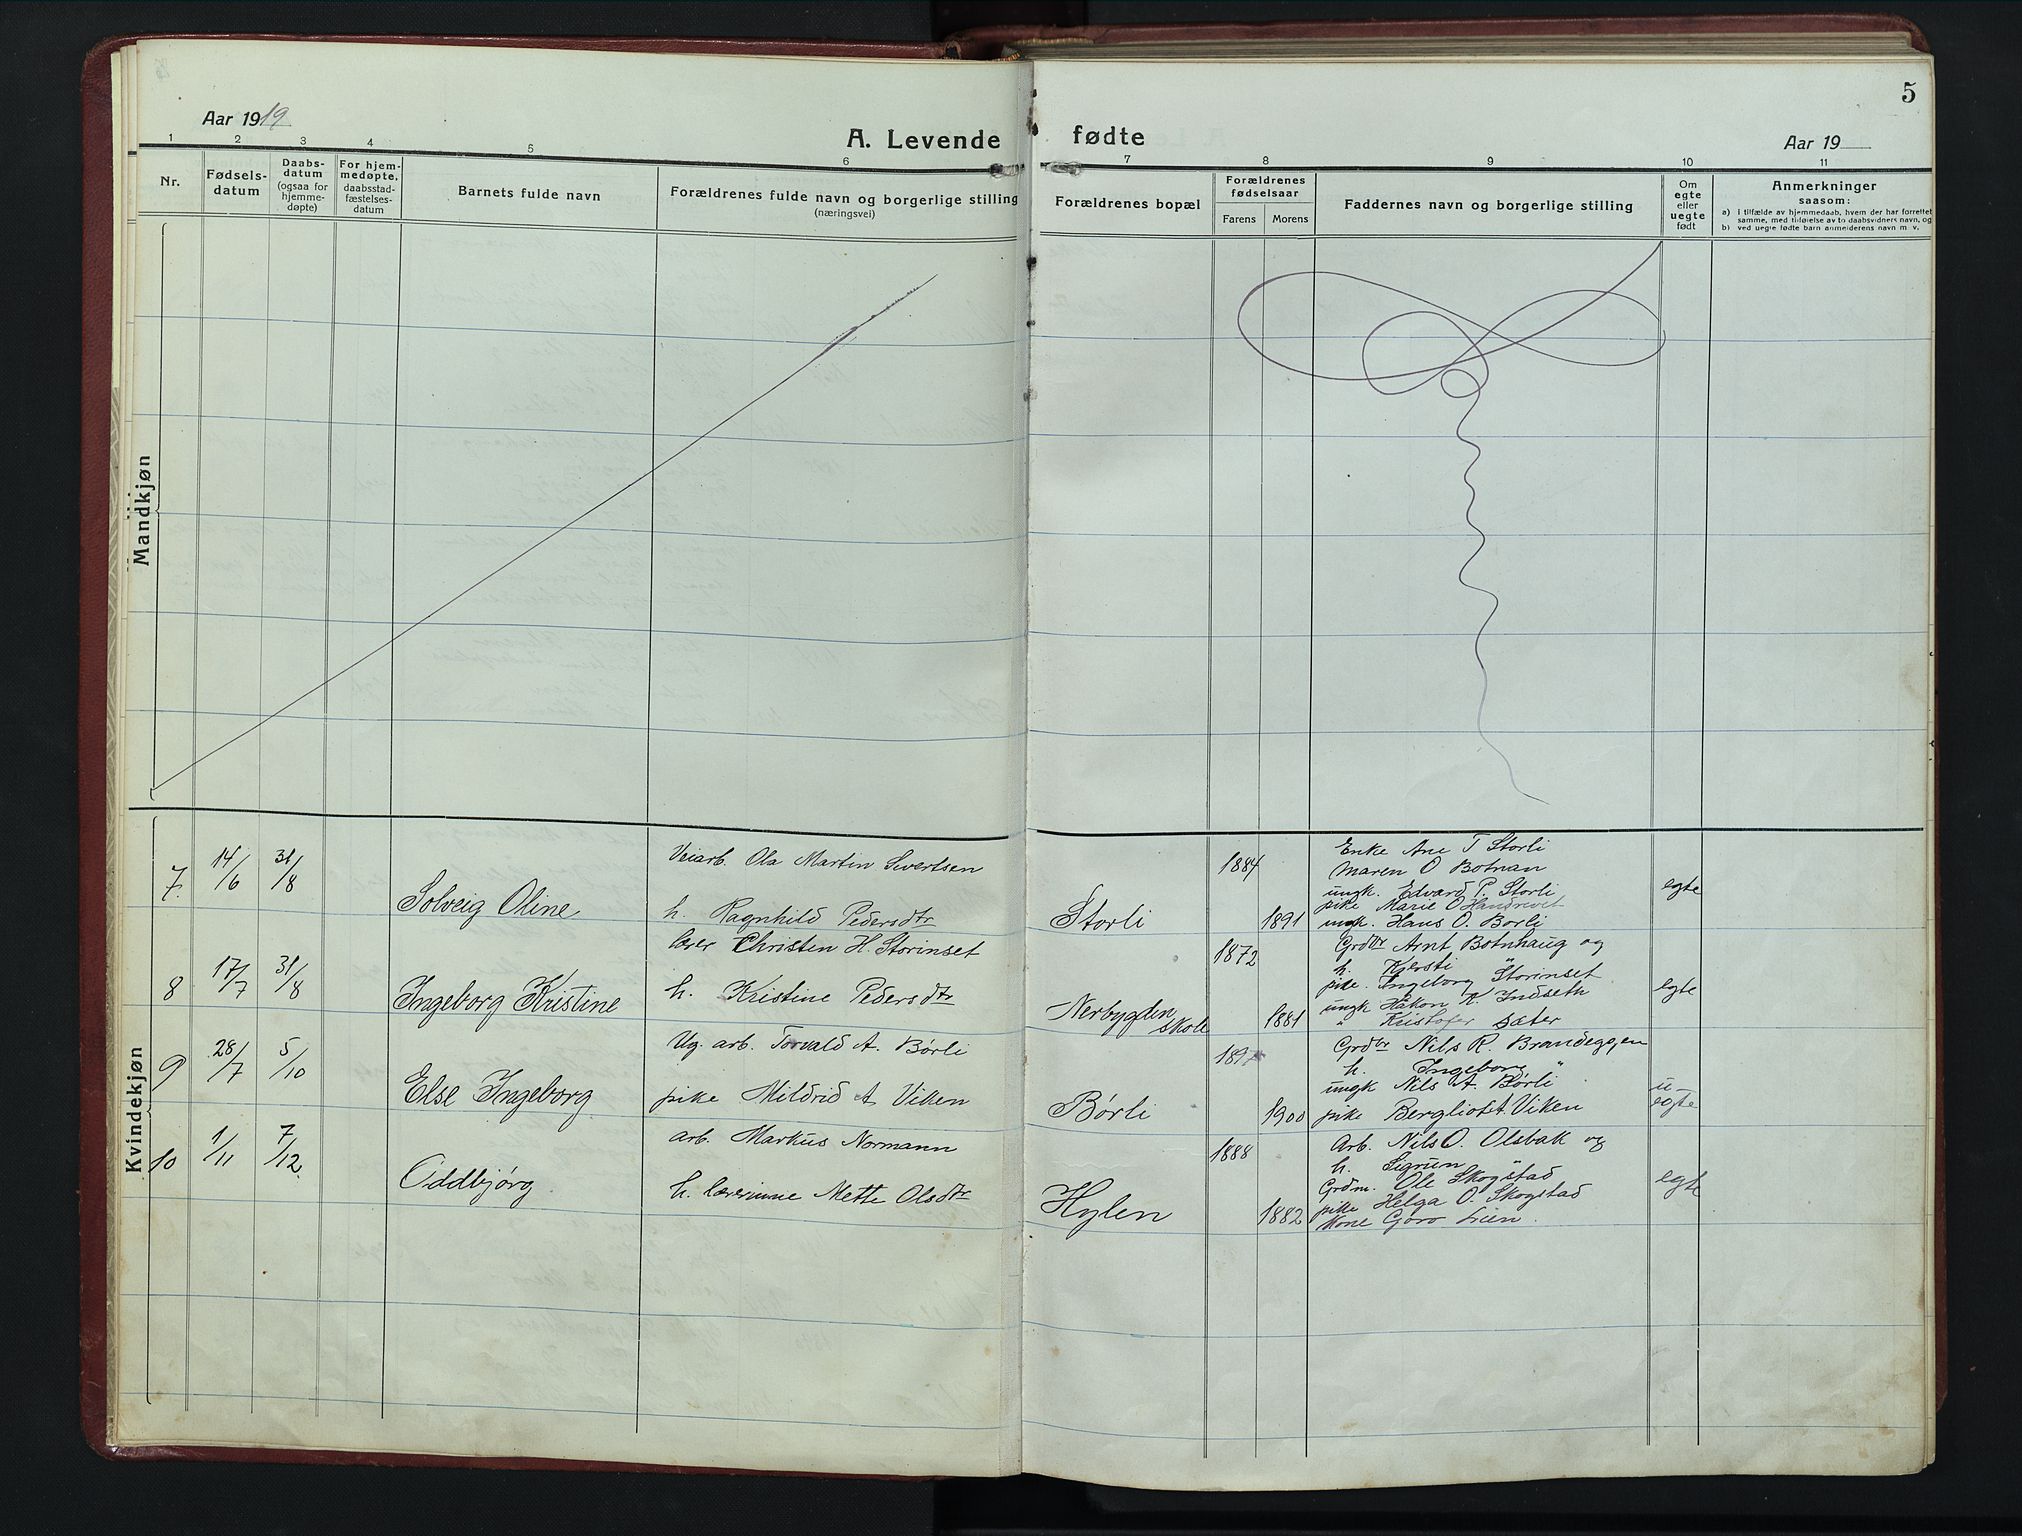 5
Aar 1919
A. Levende
fødte
Aar 19
1 2 3 4 5 6
7 8 9 10 11
Nr.
Fødsels-
datum
Daabs-
datum
(ogsaa for
hjemme-
døpte)
For hjem-
medøpte,
daabsstad-
fæstelses-
datum
Barnets fulde navn
Forældrenes fulde navn og borgerlige stilling
(næringsvei)
Forældrenes bopæl
Forældrenes
fødselsaar
Farens Morens
Faddernes navn og borgerlige stilling
Om
egte
eller
uegte
født
Anmerkninger
saasom:
a) i tilfælde av hjemmedaab, hvem der har forrettet
samme, med tilføielse av to daabsvidners navn, og
b) ved uegte fødte barn anmelderens navn m. v.
Mandkjøn
Kvindekjøn
7. 14/6 31/8
Solveig Oline
Veiarb. Ola Martin Sivertsen
h. Ragnhild Pedersdtr
Storli
1884
1891
Enke Ane T Storli
Maren O Botnan
ungk. Edvard P. Storli
pike Marie O Handrovit
ungk. Hans O. Børli
egte
8 17/7 31/8
Ingeborg Kristine
lærer Christen H. Storinset
h. Kristine Pedersdtr
Nerbygden
skole
1872
1881
Grdbr Arnt Botnhaug og
h. Kjersti "
pike. Ingeborg Storinset
ungk Håkon K. Indseth
" Kristofer Sæter
egte
9 28/7 5/10
Else Ingeborg
Ug. arb. Torvald A. Børli
pike Mildrid A Viken
Børli
1897
1900
Grdbr Nils R. Brandeggen
h. Ingeborg "
ungk Nils A. Børli
pike Bergliot Viken
u-
egte
10 1/11 7/12
Oddbjørg
arb. Markus Normann
h. lærerinne Mette Olsdtr
Hylen
1888
1882
Arb. Nils O. Olsbak og
h. Sigrun "
Grdm. Ole Skogstad
pike Helga O. Skogstad
Kone Goro Lien.
egte